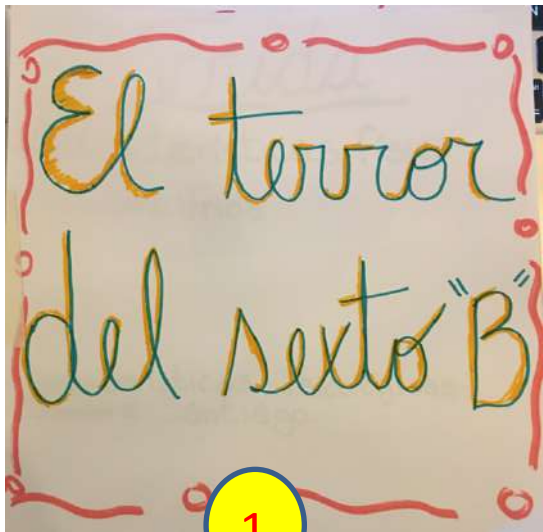 El terror
del sexto "B"
1